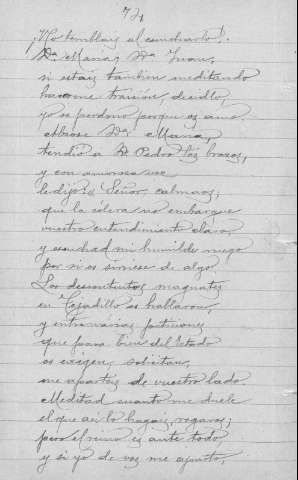 74
¡No tembláis al escucharlo!
Dª Maria, Dn Juan,
si estais tambien meditando
hacerme traición, decidlo,
yo os perdono porque os amo.
Abrióse Dª Maria,
tendió a D. Pedro los brazos,
y con amorosa voz
le dijo: Señor, calmaos,
que la cólera no embargue
vuestro entendimiento claro,
y escuchad mi humilde ruego
por si os sirviese de algo.
Los descontentos magnates
en Tejadillo os hablaron,
y entre varias peticiones
que para bien del Estado
os exigen, solicitan,
me aparteis de vuestro lado.
Meditad cuanto me duele
el que asi lo hagais, rogaros;
pero el reino es ante todo,
y si yo de vos me aparto,